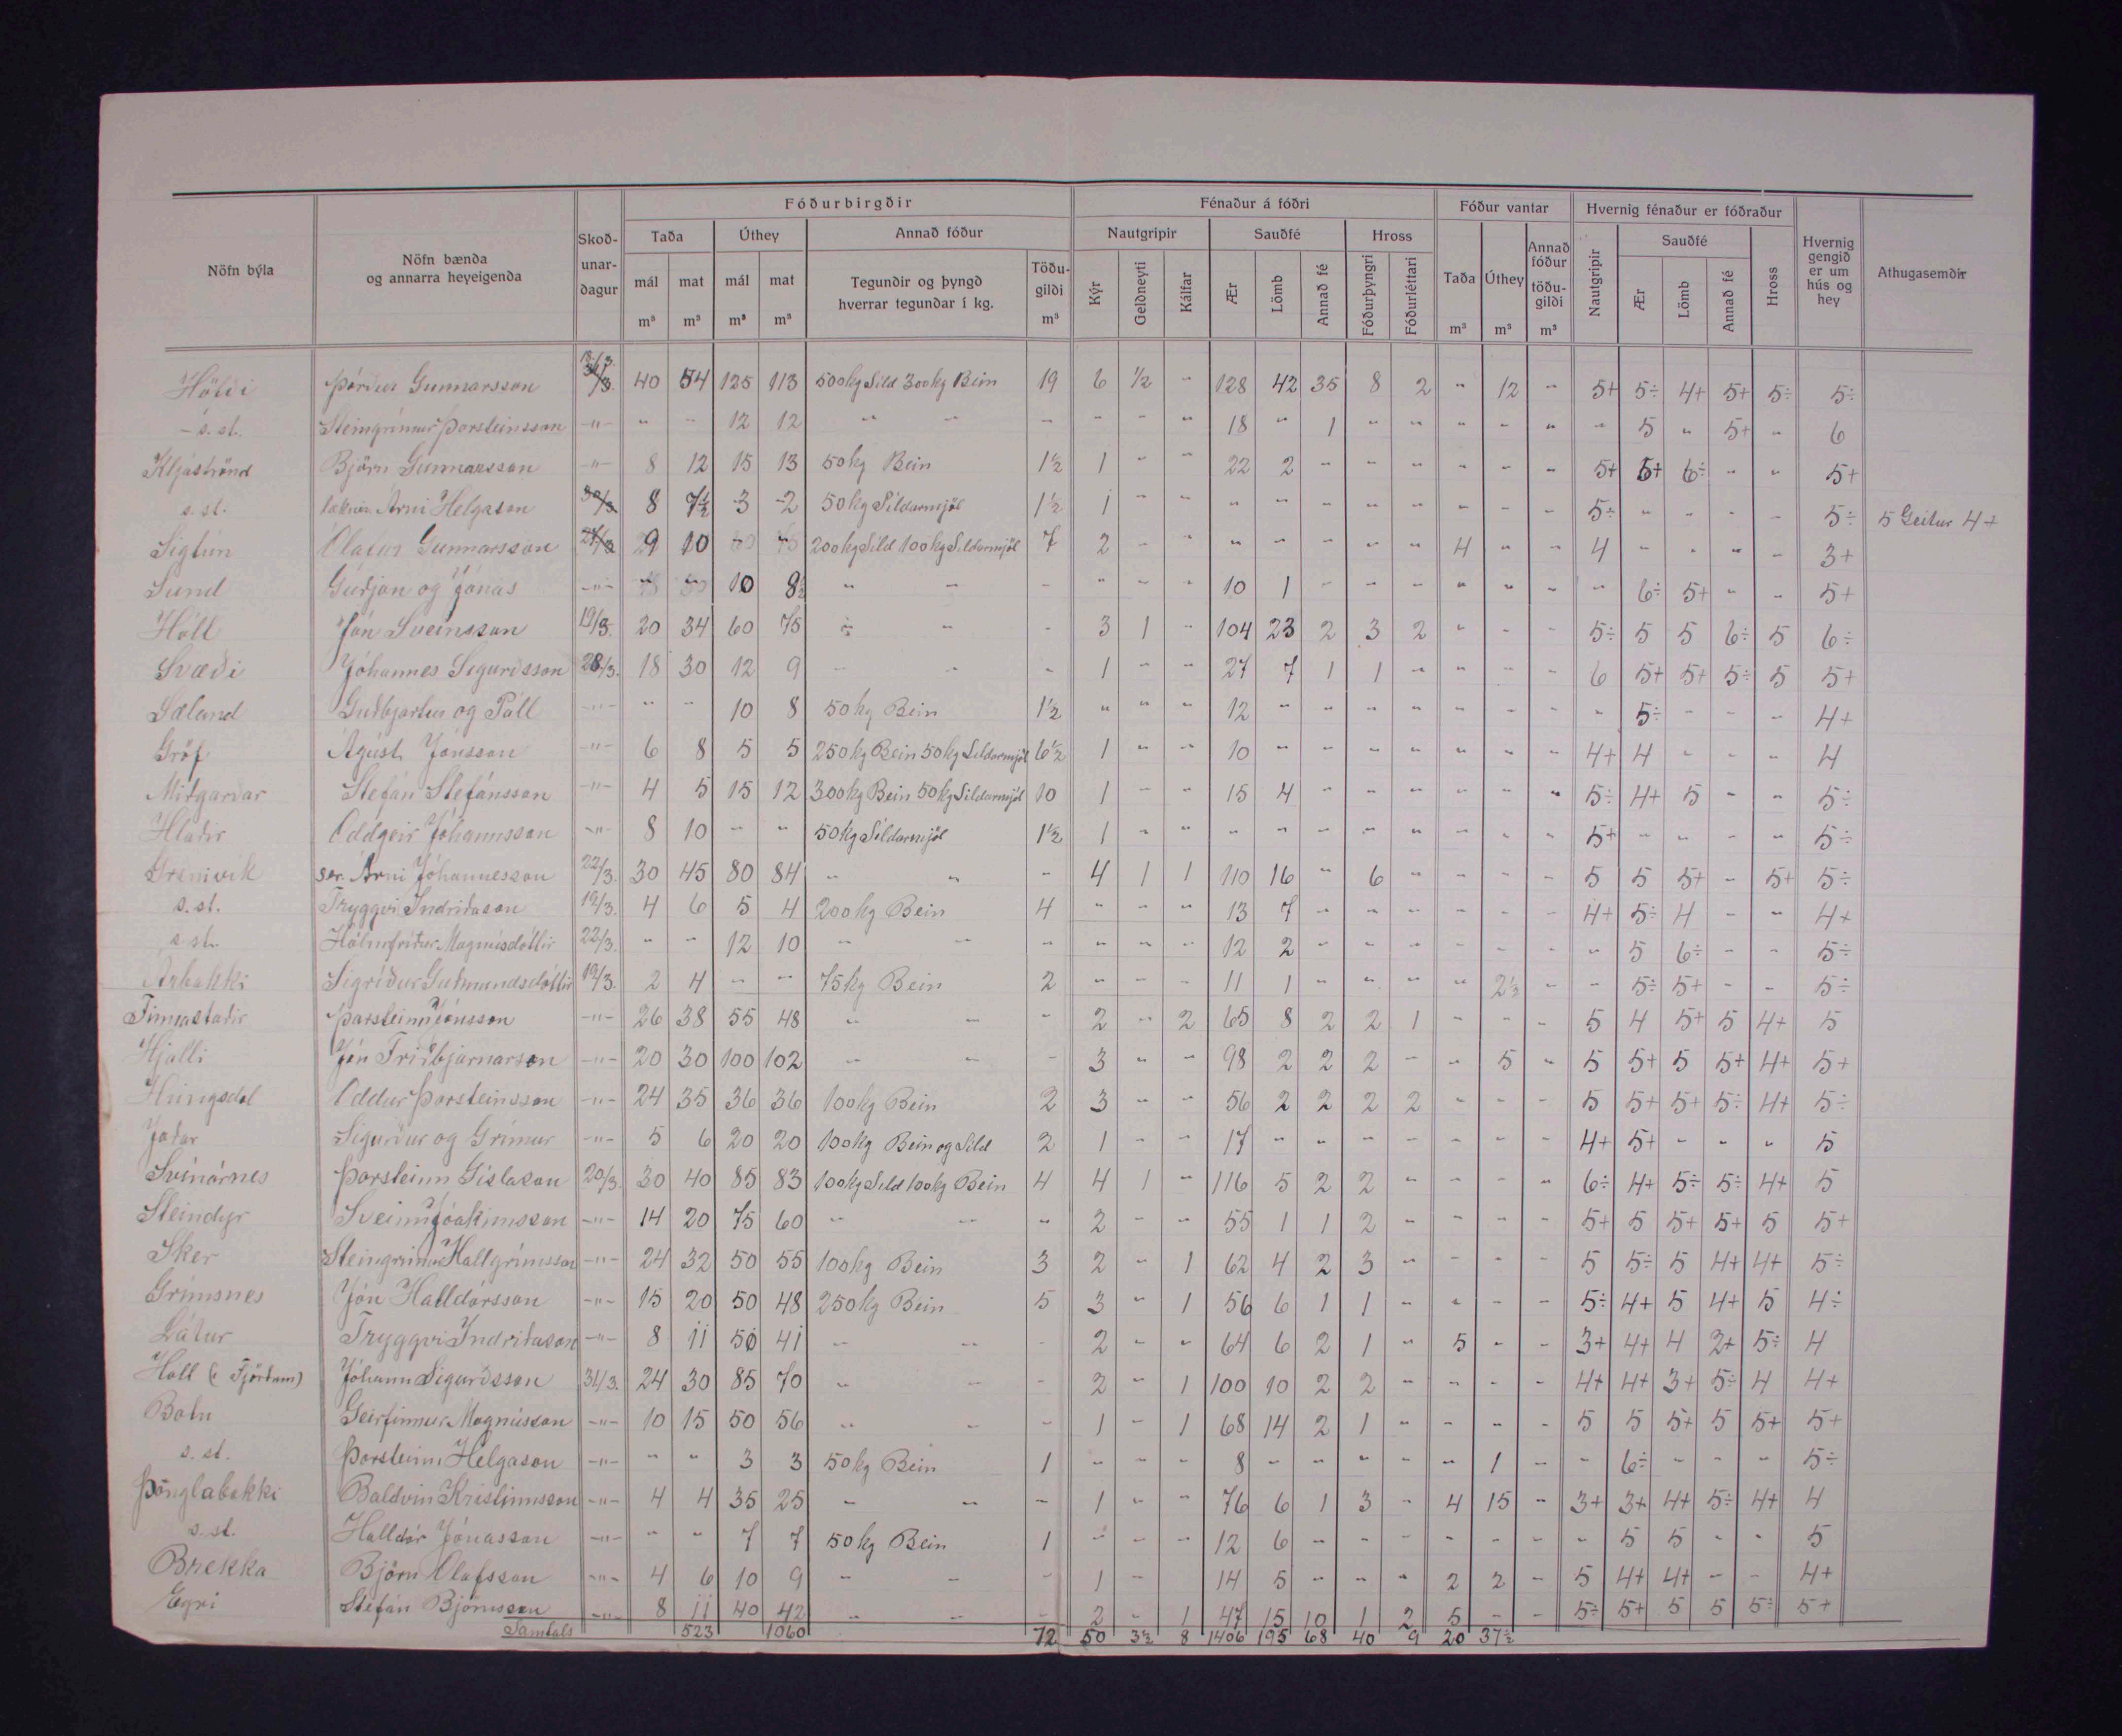 Fóðurbirgðir Fénaður á fóðri Fóður vantar Hvernig fénaður er fóðraður
Nöfn býla Nöfn bænda og annarra heyeigenda Skoðunardagur Taða Úthey Annað fóður Nautgripir Sauðfé Hross Taða Úthey Annað fóður töðugildi Nautgripir Sauðfé Hross Hvernig gengið er um hús og hey Athugasemdir
mál m³ mat m³ mál m³ mat m³ Tegundir og þyngd hverrar tegundar í kg. Töðugildi m³ Kýr Geldneyti Kálfar Ær Lömb Annað fé Fóðurþyngri Fóðurléttari m³ m³ m³ Ær Lömb Annað fé
Höfði Þórður Gunnarsson 40 54 125 113 500 kg Síld 300 kg Bein 19 6 ½ - 128 42 35 8 2 " 12 - 5+ 5÷ 4+ 5+ 5÷ 5÷
- s. st. Steingrímur Þorsteinsson -"- " - 12 12 - - - - - " 18 " 1 " " " - " " 5 " 5+ - 6
Kljáströnd Björn Gunnarsson -"- 8 12 15 13 50 kg Bein 1½ 1 - - 22 2 - - - - - - 5+ 5+ 6÷ - - 5+
s. st. læknir Árni Helgason 30/3 8 7½ 3 2 50 kg Síldarmjöl 1½ 1 - - - - - - - - - - 5÷ - - - - 5÷ 5 Geitur 4+
Sigtún Ólafur Gunnarsson 9 10 - - 200 kg Síld 100 kg Síldarmjöl 7 2 - - - - - - - 4 - - 4 - - - - 3+
Sund Guðjón og Jónas -"- " " 10 8½ - - - - - - 10 1 - - - - - - - 6÷ 5+ - - 5+
Hóll Jón Sveinsson 19/3. 20 34 60 75 - - - 3 1 - 104 23 2 3 2 - - - 5÷ 5 5 6÷ 5 6÷
Svæði Jóhannes Sigurðsson 28/3. 18 30 12 9 - - - 1 - - 27 7 1 1 - - - - 6 5+ 5+ 5÷ 5 5+
Sæland Guðbjartur og Páll -"- - - 10 8 50 kg Bein 1½ " " " 12 - - - - - - - - 5÷ - - - 4+
Gröf Ágúst Jónsson -"- 6 8 5 5 250 kg Bein 50 kg Síldarmjöl 6½ 1 - - 10 - - - - - - - 4+ 4 - - - 4
Miðgarðar Stefán Stefánsson -"- 4 5 15 12 300 kg Bein 50 kg Síldarmjöl 10 1 - - 15 4 - - - - - - 5÷ 4+ 5 - - 5÷
Hlaðir Oddgeir Jóhannsson -"- 8 10 - - 50 kg Síldarmjöl 1½ 1 - - - - - - - - - - 5+ - - - - 5÷
Grenivík sér. Árni Jóhannesson 22/3. 30 45 80 84 - - - 4 1 1 110 16 - 6 - - - - 5 5 5+ - 5+ 5÷
s. st. Tryggvi Indriðason 19/3. 4 6 5 4 200 kg Bein 4 - - - 13 7 - - - - - - 4+ 5÷ 4 - - 4+
s st. Hólmfríður Magnúsdóttir 22/3. - - 12 10 - - - - - - 12 2 - - - - - - - 5 6÷ - - 5÷
Árbakki Sigríður Guðmundsdóttir 19/3. 2 4 - - 75 kg Bein 2 - - - 11 1 - - - - 2½ - - 5÷ 5+ - - 5÷
Finnastaðir Þorsteinn Jónsson -"- 26 38 55 48 - - - 2 - 2 65 8 2 2 1 - - - 5 4 5+ 5 4+ 5
Hjalli Jón Friðbjarnarson -"- 20 30 100 102 - - - 3 - - 98 2 2 2 - - 5 - 5 5+ 5 5+ 4+ 5+
Hringsdal Oddur Þorsteinsson -"- 24 35 36 36 100 kg Bein 2 3 - - 56 2 2 2 2 - - - 5 5+ 5+ 5÷ 4+ 5÷
Jaðar Sigurður og Grímur -"- 5 6 20 20 100 kg Bein og Síld 2 1 - - 17 - - - - - - - 4+ 5+ - - - 5
Svínárnes Þorsteinn Gíslason 20/3. 30 40 85 83 100 kg Síld 100 kg Bein 4 4 1 - 116 5 2 2 - - - - 6÷ 4+ 5÷ 5÷ 4+ 5
Steindyr Sveinn Jóakimsson -"- 14 20 75 60 - - - 2 - - 55 1 1 2 - - - - 5+ 5 5+ 5+ 5 5+
Sker Steingrímur Hallgrímsson -"- 24 32 50 55 100 kg Bein 3 2 - 1 62 4 2 3 - - - - 5 5÷ 5 4+ 4+ 5÷
Grímsnes Jón Halldórsson -"- 15 20 50 48 250 kg Bein 5 3 - 1 56 6 1 1 - - - - 5÷ 4+ 5 4+ 5 4÷
Látur Tryggvi Indriðason -"- 8 11 50 41 - - - 2 - - 64 6 2 1 - 5 - - 3+ 4+ 4 2+ 5÷ 4
Hóll (í Fjörðum) Jóhann Sigurðsson 31/3. 24 30 85 70 - - - 2 - 1 100 10 2 2 - - - - 4+ 4+ 3+ 5÷ 4 4+
Botn Geirfinnur Magnússon -"- 10 15 50 56 - - - 1 - 1 68 14 2 1 - - - - 5 5 5+ 5 5+ 5+
s. st. Þorsteinn Helgason -"- - - 3 3 50 kg Bein 1 - - - 8 - - - - - 1 - - 6÷ - - - 5÷
Þönglabakki Baldvin Kristinnsson -"- 4 4 35 25 - - - 1 - - 76 6 1 3 - 4 15 - 3+ 3+ 4+ 5÷ 4+ 4
s. st. Halldór Jónasson -"- - - 7 7 50 kg Bein 1 - - - 12 6 - - - - - - - 5 5 - - 5
Brekka Björn Ólafsson -"- 4 6 10 9 - - - 1 - 14 5 - - - 2 2 - 5 4+ 4+ - - 4+
Eyri Stefán Björnsson -"- 8 11 40 42 - - - 2 - 1 47 15 10 1 2 5 - - 5÷ 5+ 5 5 5÷ 5+
Samtals 523 1060 72 50 3½ 8 1406 195 68 40 9 20 37½